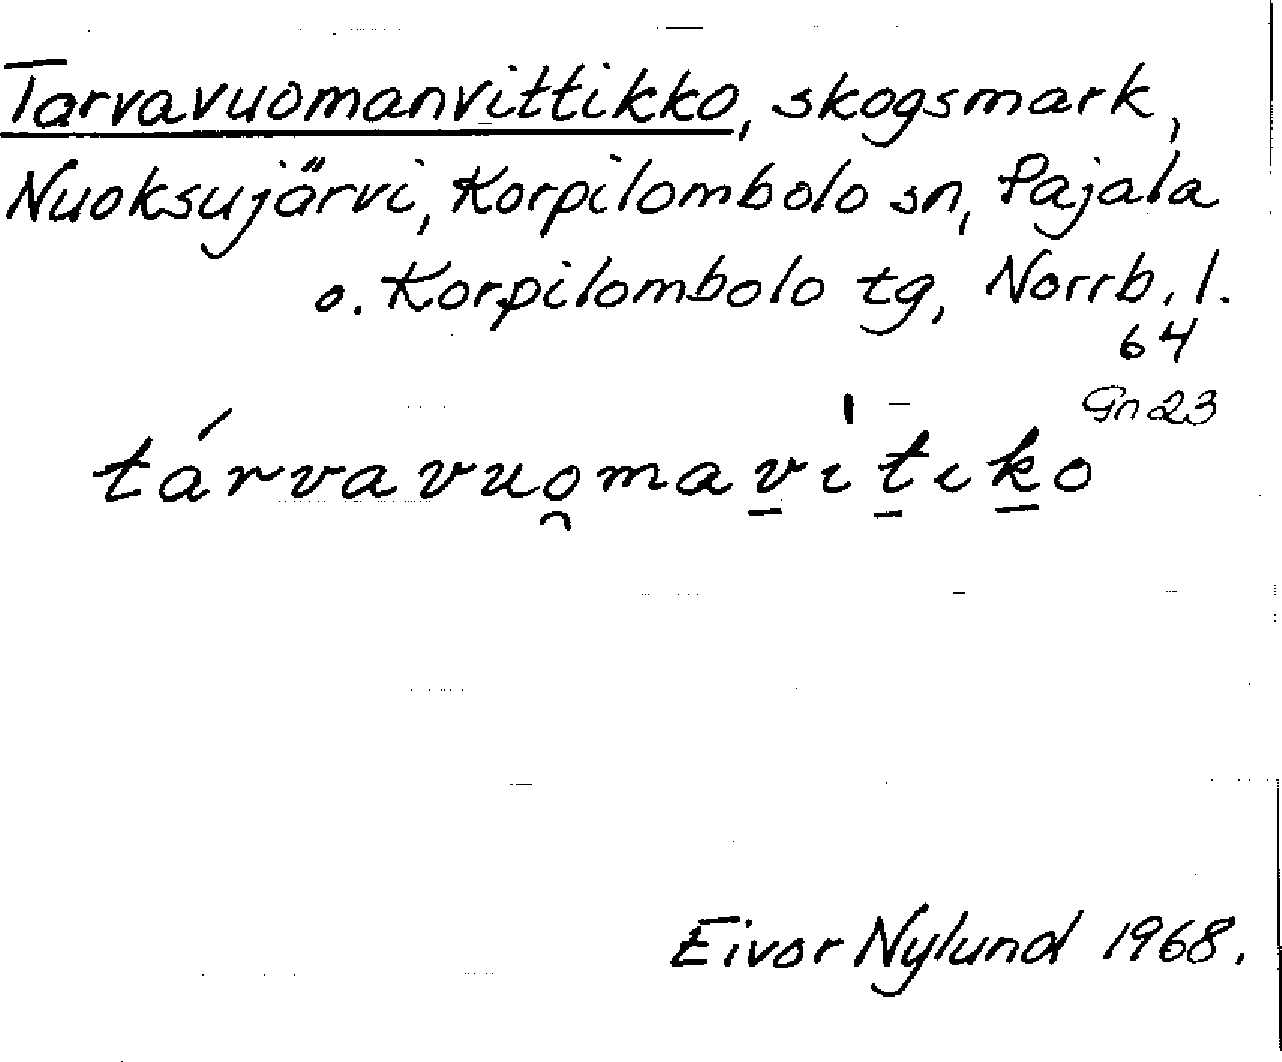 Tarvavuomanvittikko, skogsmark,
Nuoksujärvi, Korpilombolo sn, Pajala
o. Korpilombolo tg, Norrb. l.
64
Gn 23
tárvavuo̯mav̱ìṯiḵo
Eivor Nylund 1968.